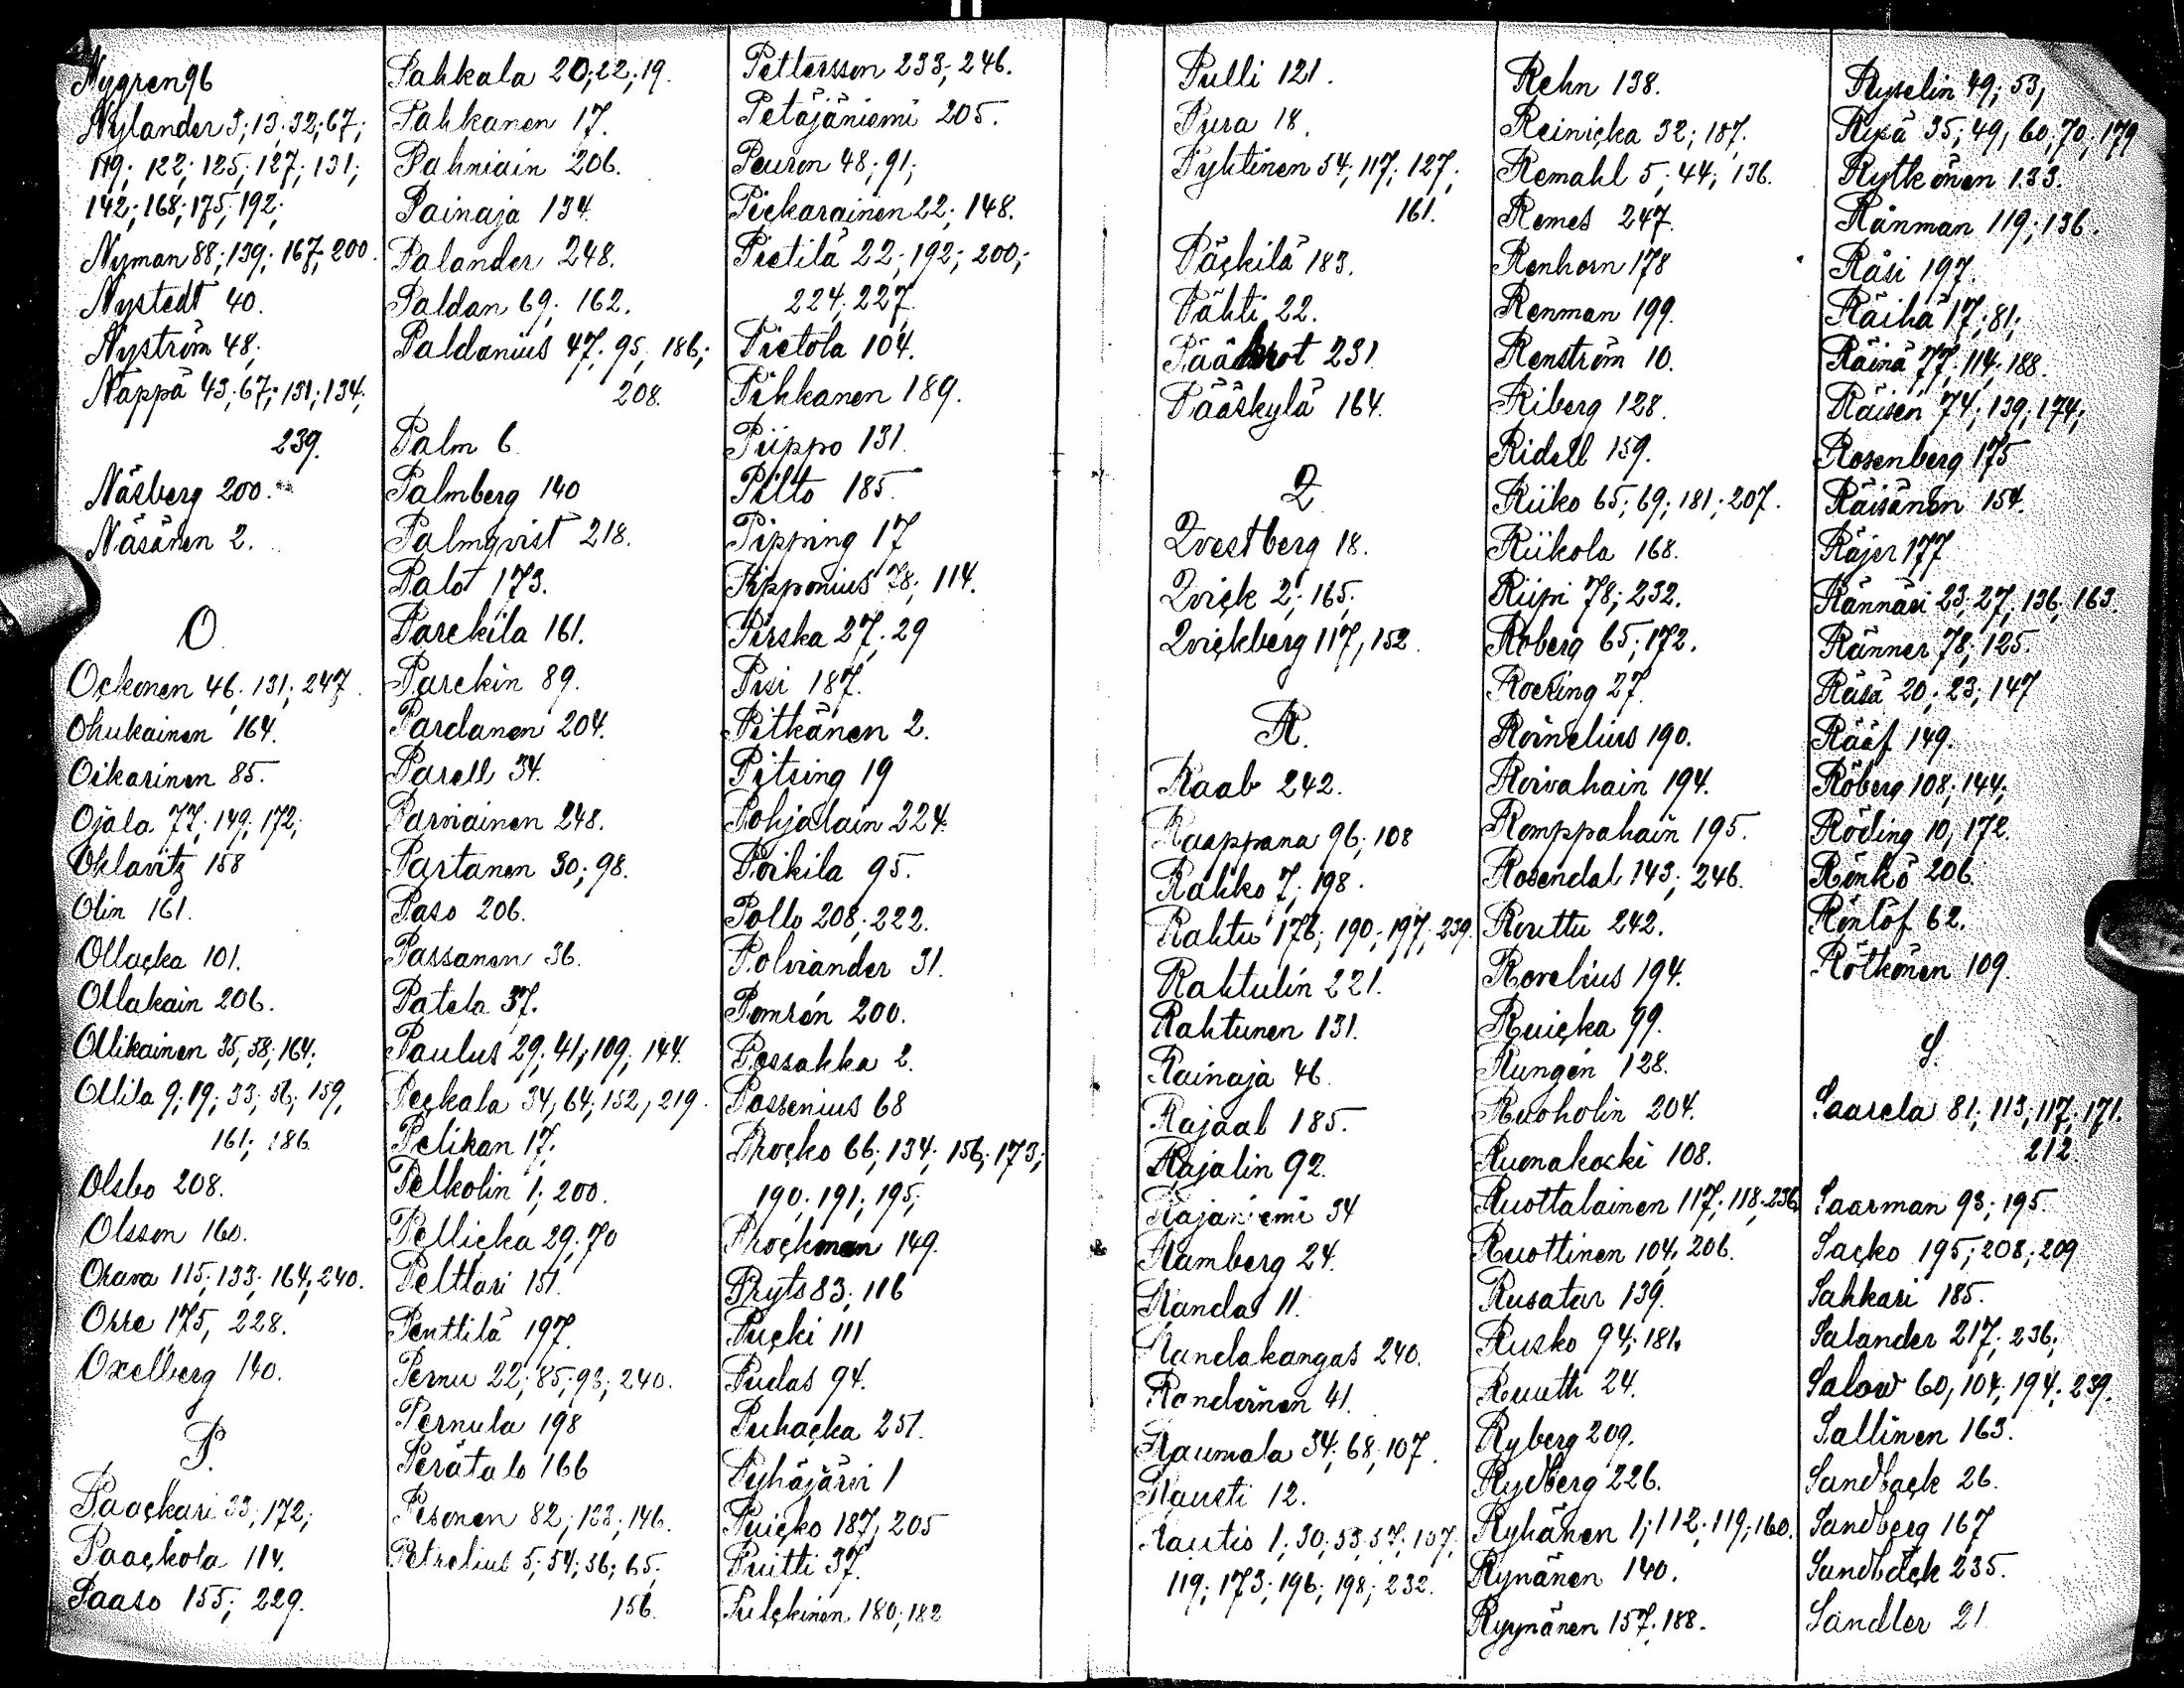 Nygren 96
Nylander 3; 13; 32; 67;
119; 122; 125; 127; 131;
142; 168; 175; 192;
Nyman 88; 139; 167; 200.
Nystedt 40.
Nyström 48;
Näppä 43; 67; 131; 134;
239.
Näsberg 200.
Näsänen 2.
O.
Ockonen 46; 131; 247.
Ohukainen 164.
Oikarinen 85.
Ojala 77; 149; 172;
Oklavitz 158
Olin 161.
Ollacka 101.
Ollakain 206.
Ollikainen 35, 58; 164;
Ollila 9; 19; 33; 56; 159,
161; 186.
Olsbo 208.
Olsson 160.
Orava 115; 133; 164; 240.
Orre 175, 228.
Oxelberg 140.
P.
Paackari 33, 172;
Paackola 114.
Paaso 155; 229.
Pahkala 20; 22; 19.
Pahkanen 17.
Pahniain 206.
Painaja 134.
Palander 248.
Paldan 69; 162.
Paldanius 47; 95; 186;
208.
Palm 6
Palmberg 140
Palmqvist 218.
Palot 173.
Parckila 161.
Parckin 89.
Pardanen 204.
Parell 34.
Parviainen 248.
Partanen 30; 98.
Paso 206.
Passanen 36.
Patela 37.
Paulus 29; 41; 109; 144.
Peckala 34; 64; 152, 219.
Pelikan 17.
Pelkolin 1; 200.
Pellicka 29; 70
Pelttari 151.
Penttilä 197.
Pernu 22; 85; 93; 240.
Pernula 198
Perätalo 166
Pesonen 82; 133; 146.
Petrelius 5; 54; 56; 65;
156.
Pettersson 233; 246.
Petäjäniemi 205.
Peuron 48; 91;
Pickarainen 22; 148.
Pietilä 22; 192; 200;
224; 227
Pietola 104.
Pihkanen 189.
Piippo 131.
Pilto 185.
Pipping 17
Pipponius 78; 114.
Pirska 27; 29
Pisi 187.
Pitkänen 2.
Pitsing 19
Pohjalain 224.
Poikila 95.
Pollo 208; 222.
Polviander 31.
Pomrén 200.
Possakka 2.
Possenius 68
Procko 66; 134; 156; 173;
190; 191; 195;
Prockman 149.
Pryts 83; 116
Pucki 111
Pudas 94.
Puhacka 251.
Pyhäjärvi 1
Puicko 187; 205
Puitti 37.
Pulckinen 180; 182
Pulli 121.
Pura 18.
Pyhtinen 54; 117; 127;
161.
Päckilä 183.
Pähti 22.
Pääkrot 231.
Pääskylä 164.
Q
Qvestberg 18.
Qvick 2; 165;
Qvickberg 117, 152.
R.
Raab 242.
Raappana 96; 108
Rahko 7; 198.
Rahtu 176; 190; 197; 239.
Rahtulin 221.
Rahtunen 131.
Rainaja 46.
Rajaal 185.
Rajalin 92.
Rajaniemi 34
Ramberg 24.
Randal 11.
Randakangas 240.
Randoinen 41.
Raumala 34; 68; 107.
Rausti 12.
Rautio 1; 30; 53; 57; 107;
119; 173; 196; 198; 232.
Rehn 138.
Reinicka 32; 187.
Remahl 5; 44; 136.
Remes 247.
Renhorn 178
Renman 199.
Renström 10.
Riberg 128.
Ridell 159.
Riiko 65; 69; 181; 207.
Riikola 168.
Riipi 78; 232.
Roberg 65; 172.
Roering 27.
Roinelius 190.
Roivahain 194.
Romppahain 195.
Rosendal 143; 246.
Routtu 242.
Rovelius 194.
Ruicka 99.
Rungén 128.
Ruoholin 204.
Ruonakoski 108.
Ruottalainen 117; 118; 236.
Ruottinen 104, 206.
Rusatar 139.
Rusko 94; 181.
Ruuth 24.
Ryberg 209.
Rydberg 226.
Ryhänen 1; 112; 119; 160.
Rynänen 140.
Ryynänen 157; 188.
Ryselin 49; 53;
Rysä 35; 49; 60; 70; 179
Rytkönen 133.
Ränman 119; 136.
Räsi 197.
Räihä 17; 81;
Räinä 77; 114; 188.
Räisen 74; 139; 174;
Rosenberg 175
Räisänen 154.
Räjer 177
Rännäri 23; 27; 136; 163.
Ränner 78; 125.
Räsä 20; 23; 147
Rääf 149.
Röberg 108; 144;
Röding 10; 172.
Rönkö 206.
Rönlöf 62.
Rötkönen 109.
S.
Saarela 81; 113; 117; 171.
212.
Saarman 93; 195.
Sacko 195; 208; 209
Sahkari 185.
Salander 217; 236;
Salow 60, 104; 194; 239.
Sallinen 163.
Sandback 26.
Sandberg 167
Sandbäck 235.
Sandler 21